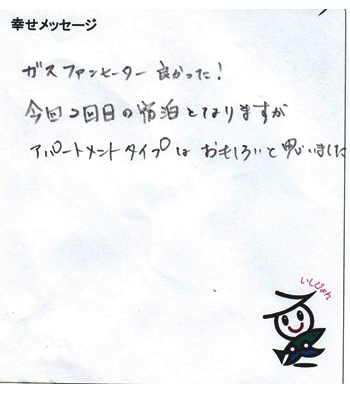 幸せメッセージ
ガスファンヒーター良かった!
今回2回目の宿泊となりますが
アパートメントタイプはおもしろいと思いました
いしぴょん